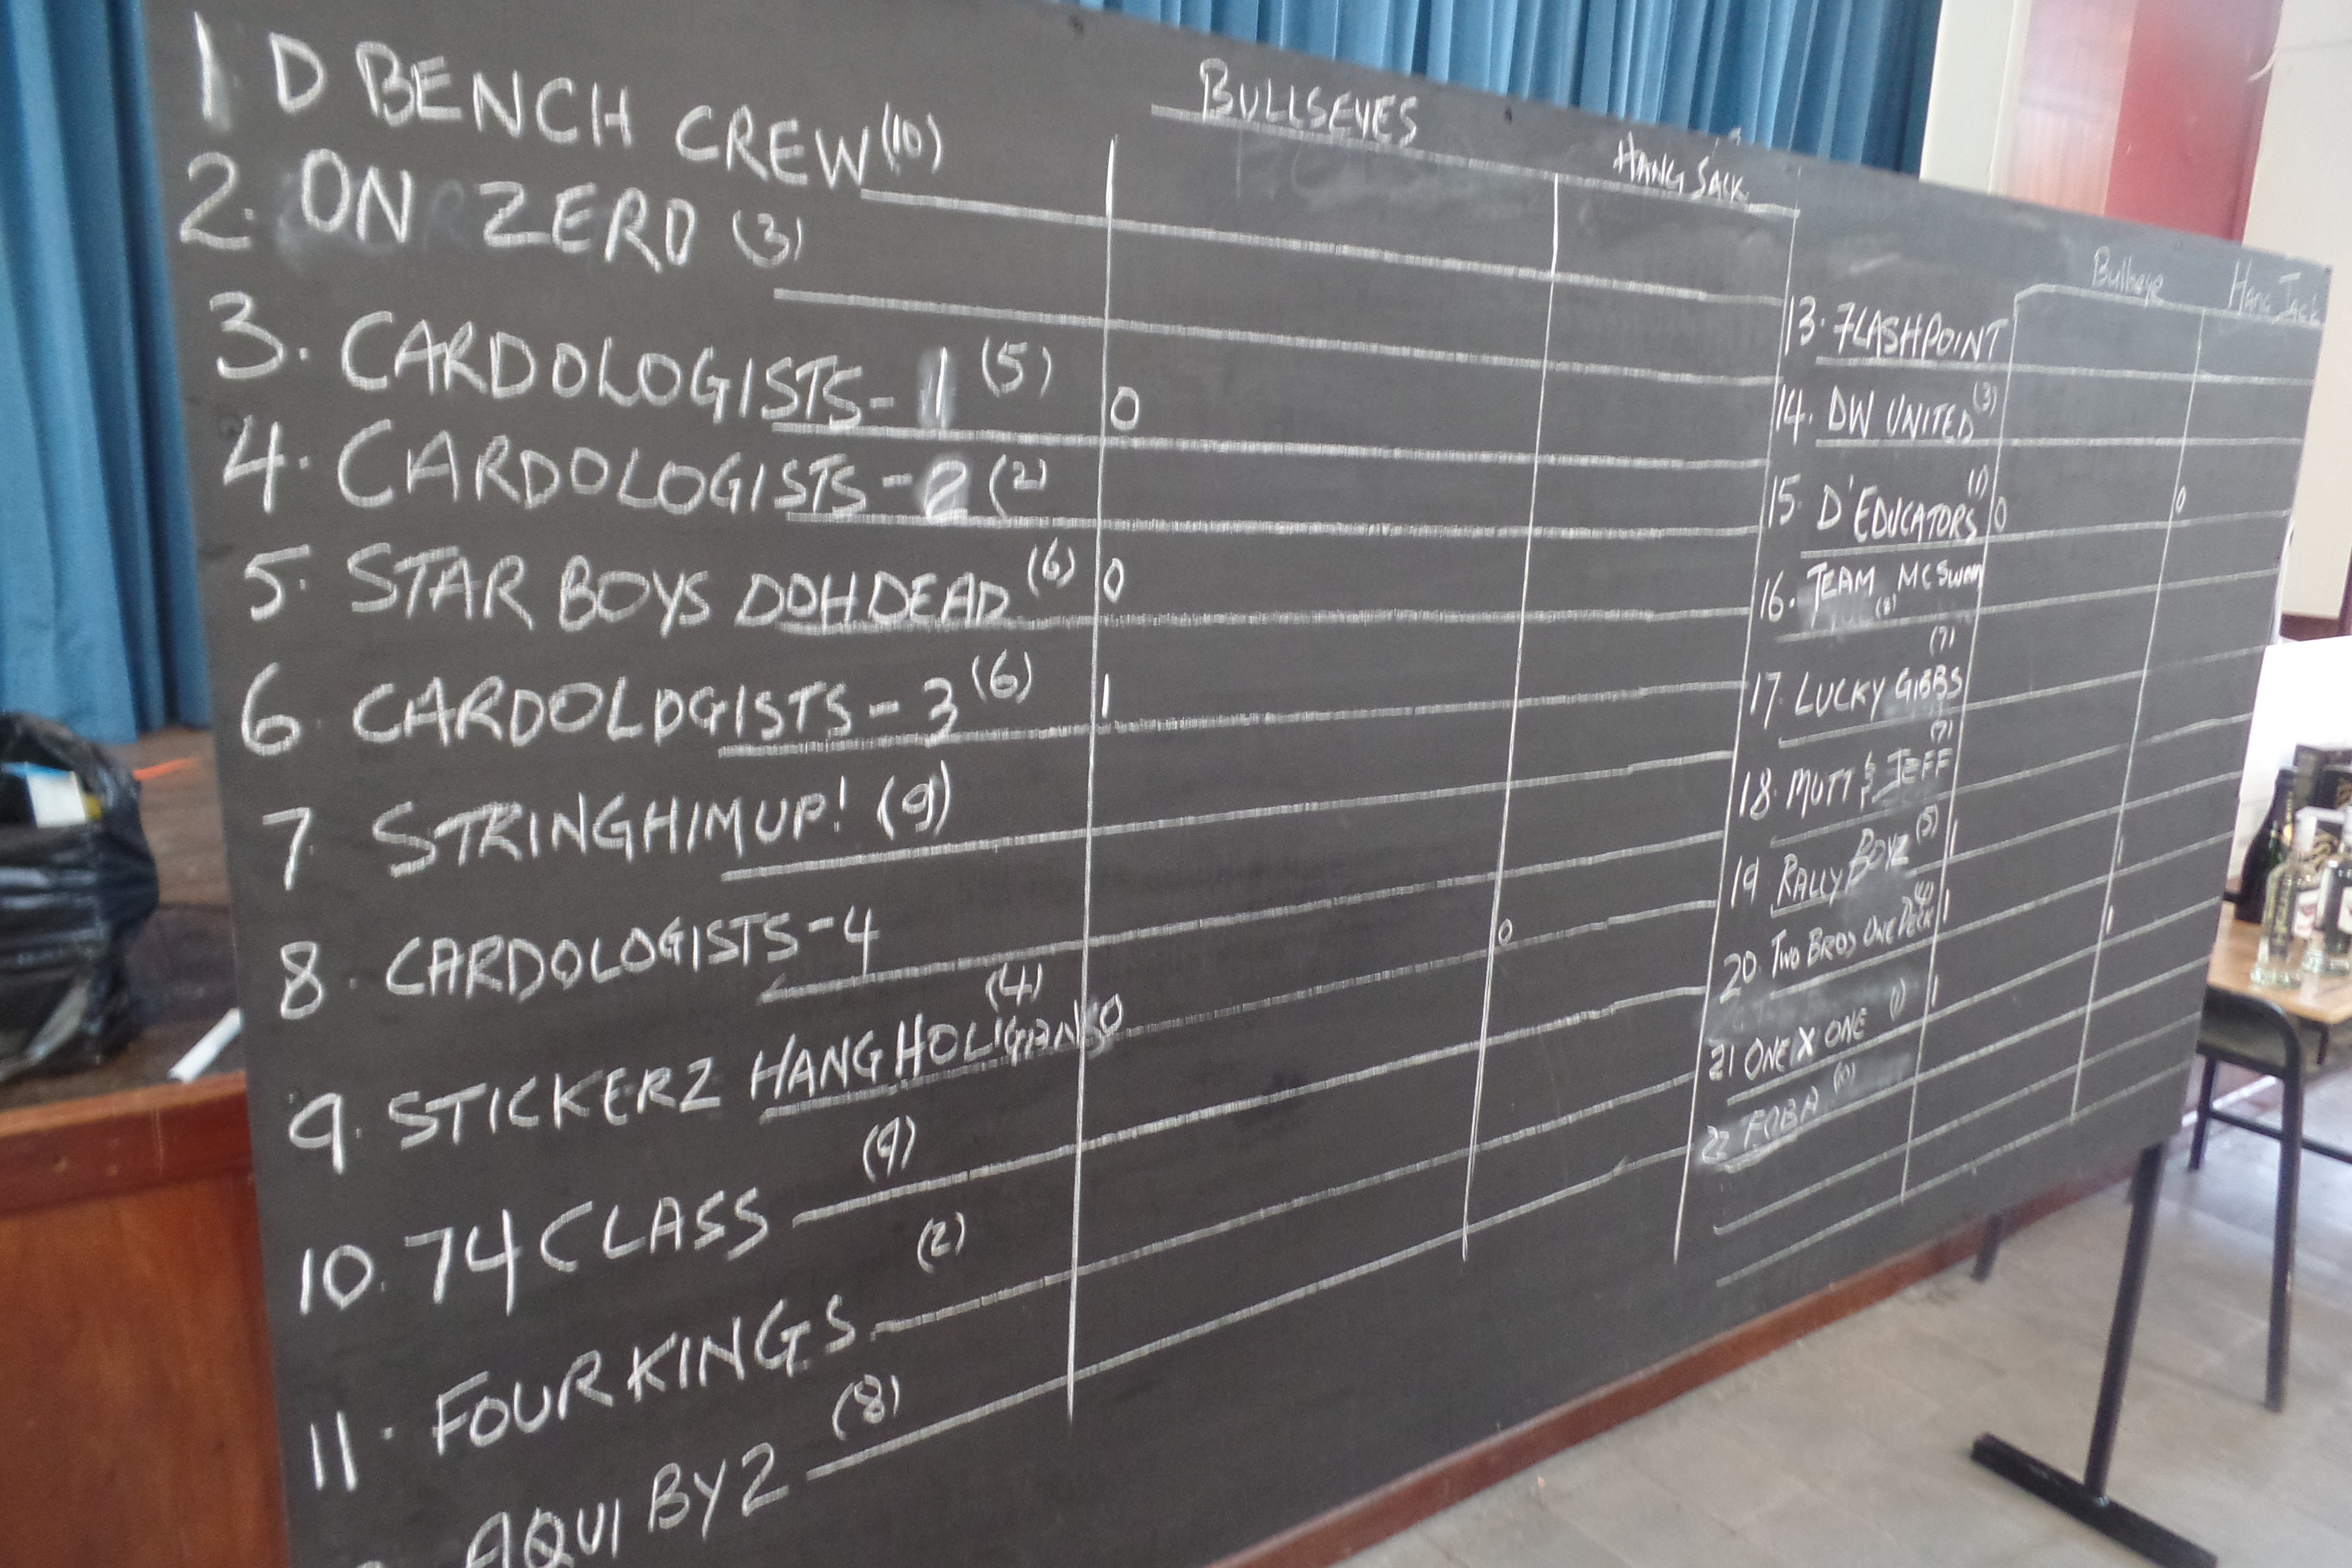 BULLSEYES HANG SACK
1 D BENCH CREW (10)
2. ON ZERO (3)
3. CARDOLOGISTS-1 (5) 0
4. CARDOLOGISTS-2 (2)
5. STAR BOYS DOH DEAD (6) 0
6 CARDOLOGISTS-3 (6) 1
7 STRINGHIMUP! (9)
8. CARDOLOGISTS-4
9. STICKERZ HANG HOLIGANS (4) 0 0
10. 74 CLASS (9)
11. FOUR KINGS (2)
AQUI BY 2 (8)
Bullseye Hang Jack
13. FLASHPOINT
14. DW UNITED (3)
15. D'EDUCATORS (1) 0 0
16. TEAM MCSWAIN (8)
17. LUCKY GIBBS (7)
18. MUTT & JEFF (7)
19 RALLY BOYZ (5) 1 1
20. TWO BROS ONE DECK (4) 1 1
21 ONE X ONE (1) 1
22 FOBA (10)